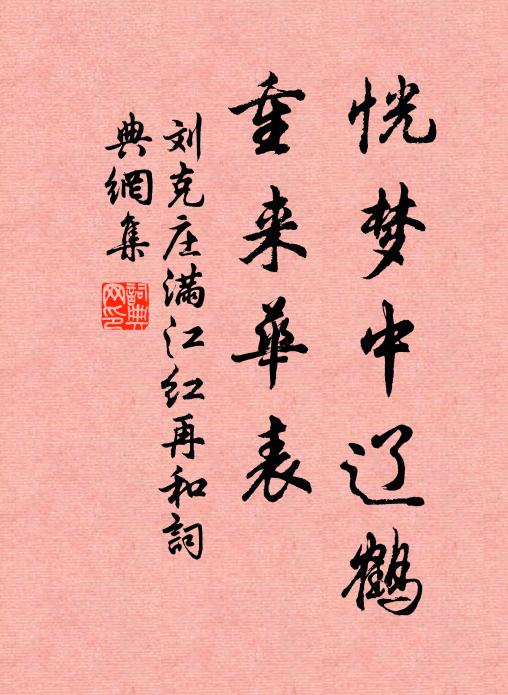 恍梦中辽鹤
重来华表
刘克庄满江红再和詞
典網集
詞典
网印